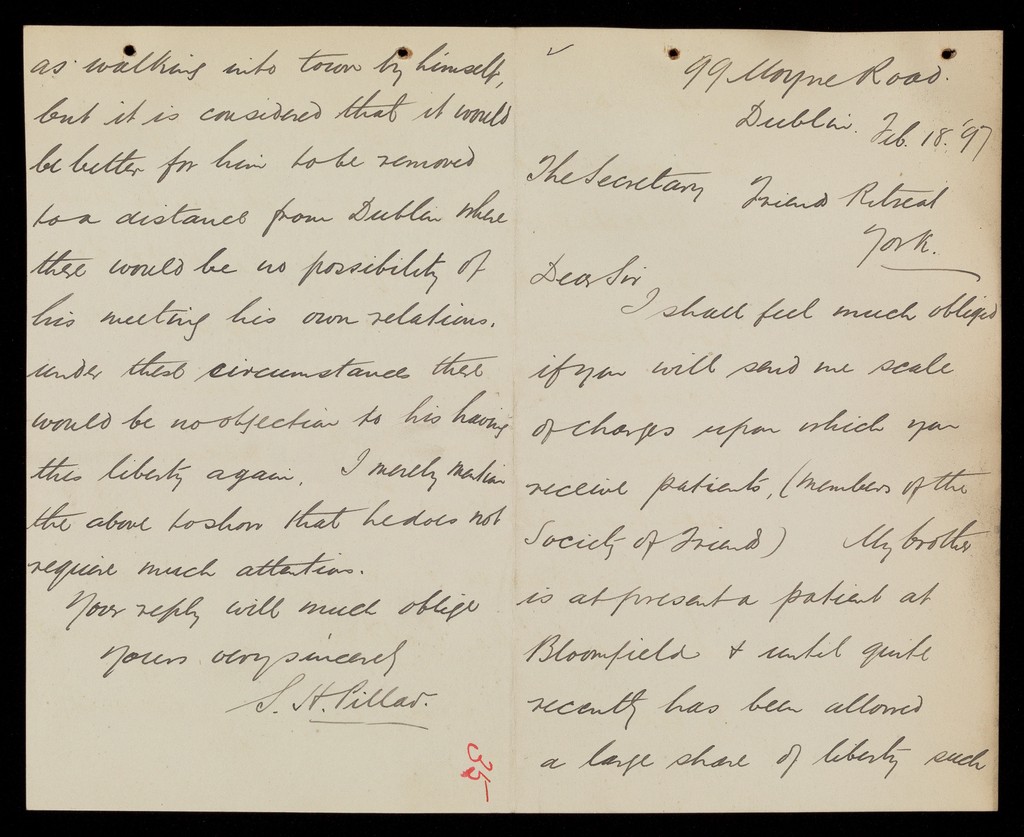 99 Moyne Road.
Dublin. Feb. 18. '97
The Secretary Friends Retreat
York.
Dear Sir
I shall feel much obliged
if you will send me scale
of charges upon which you
receive patients, (members of the
Society of Friends) My brother
is at present a patient at
Bloomfield & until quite
recently has been allowed
a large share of liberty such
as walking into town by himself,
but it is considered that it would
be better for him to be removed
to a distance from Dublin where
there would be no possibility of
his meeting his own relations.
under these circumstances there
would be no objection to his having
this liberty again. I merely mention
the above to show that he does not
require much attention.
Your reply will much oblige
Yours very sincerely
S. H. Pillar.
35